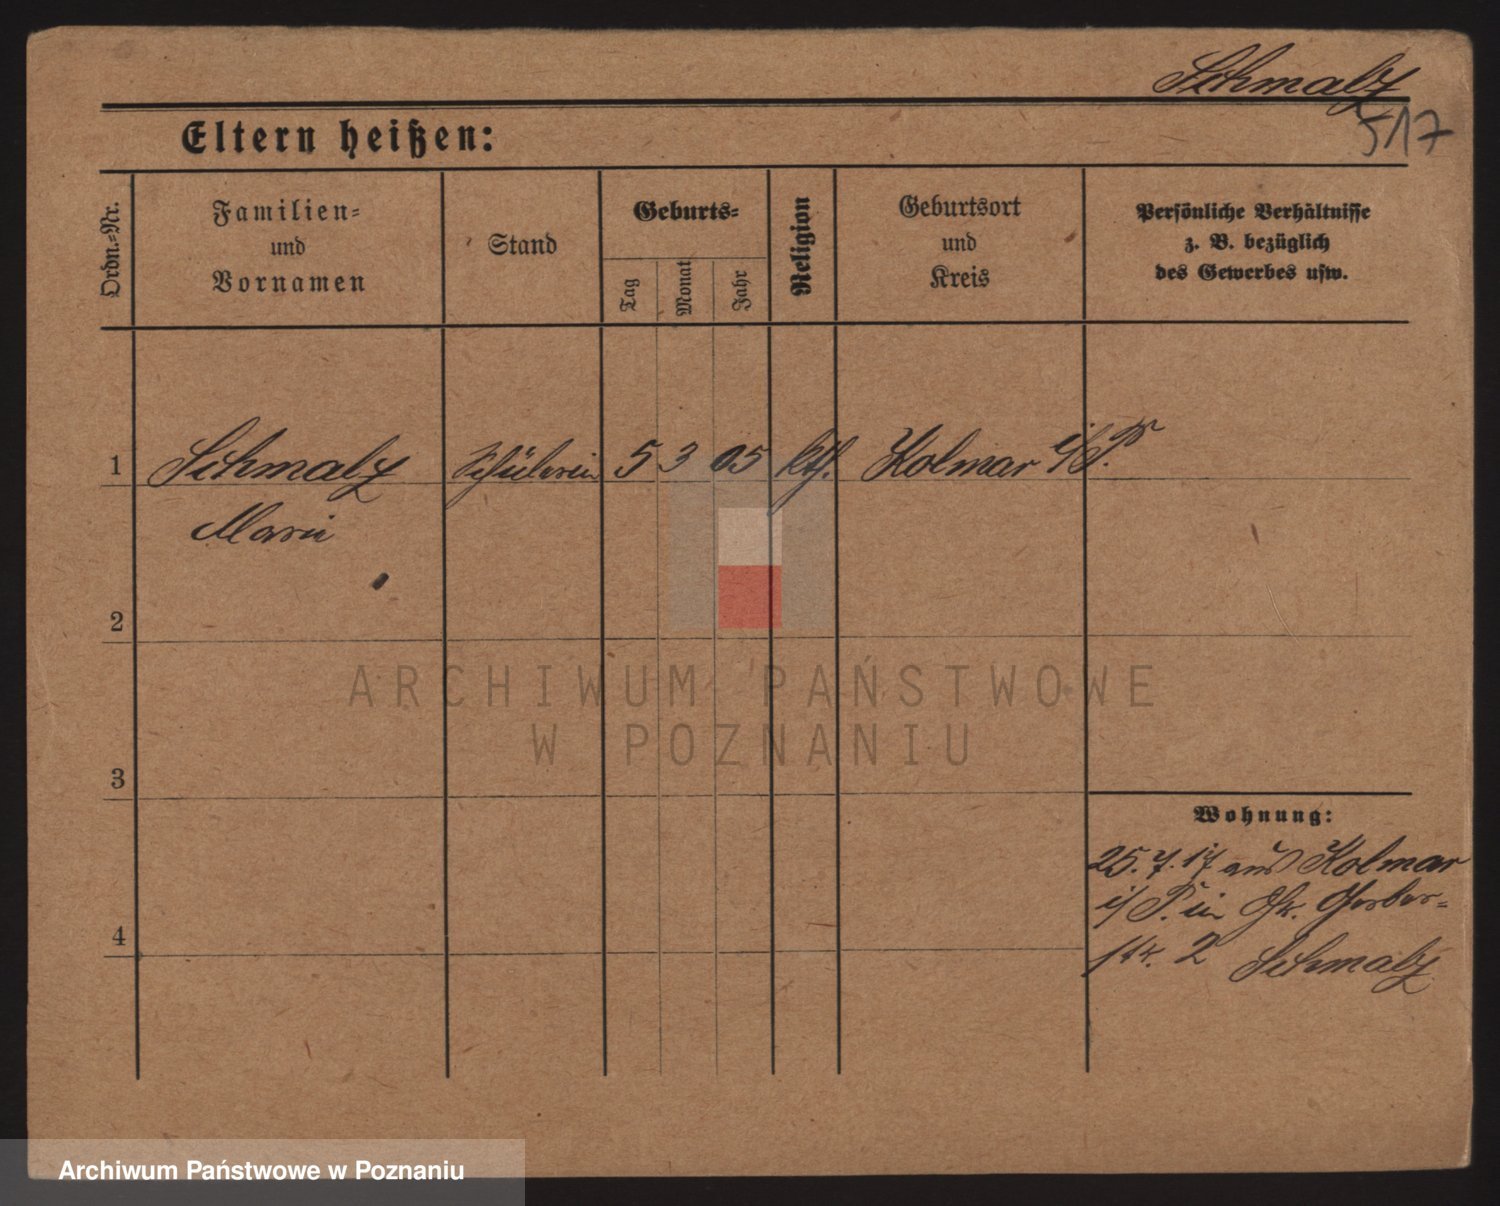 Schmalz
517
Eltern heißen:
Ordn.-Nr.
Familien-
und
Vornamen
Stand
Geburts-
Tag
Monat
Jahr
Religion
Geburtsort
und
Kreis
Persönliche Verhältnisse
z. B. bezüglich
des Gewerbes usw.
1 Schmalz Schülerin 5 3 05 kth. Kolmar i/P.
Marie
2
3
4
Wohnung:
25.7.17 aus Kolmar
i/P. in Gerber-
str. 2 Schmalz
ARCHIWUM PAŃSTWOWE
W POZNANIU
Archiwum Państwowe w Poznaniu